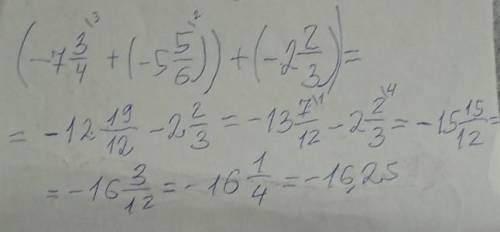 (-7 3/4 \3 + (-5 5/6 \2)) + (-2 2/3) =
= -12 19/12 - 2 2/3 = -13 7/12 \1 - 2 2/3 \4 = -15 15/12 =
= -16 3/12 = -16 1/4 = -16,25